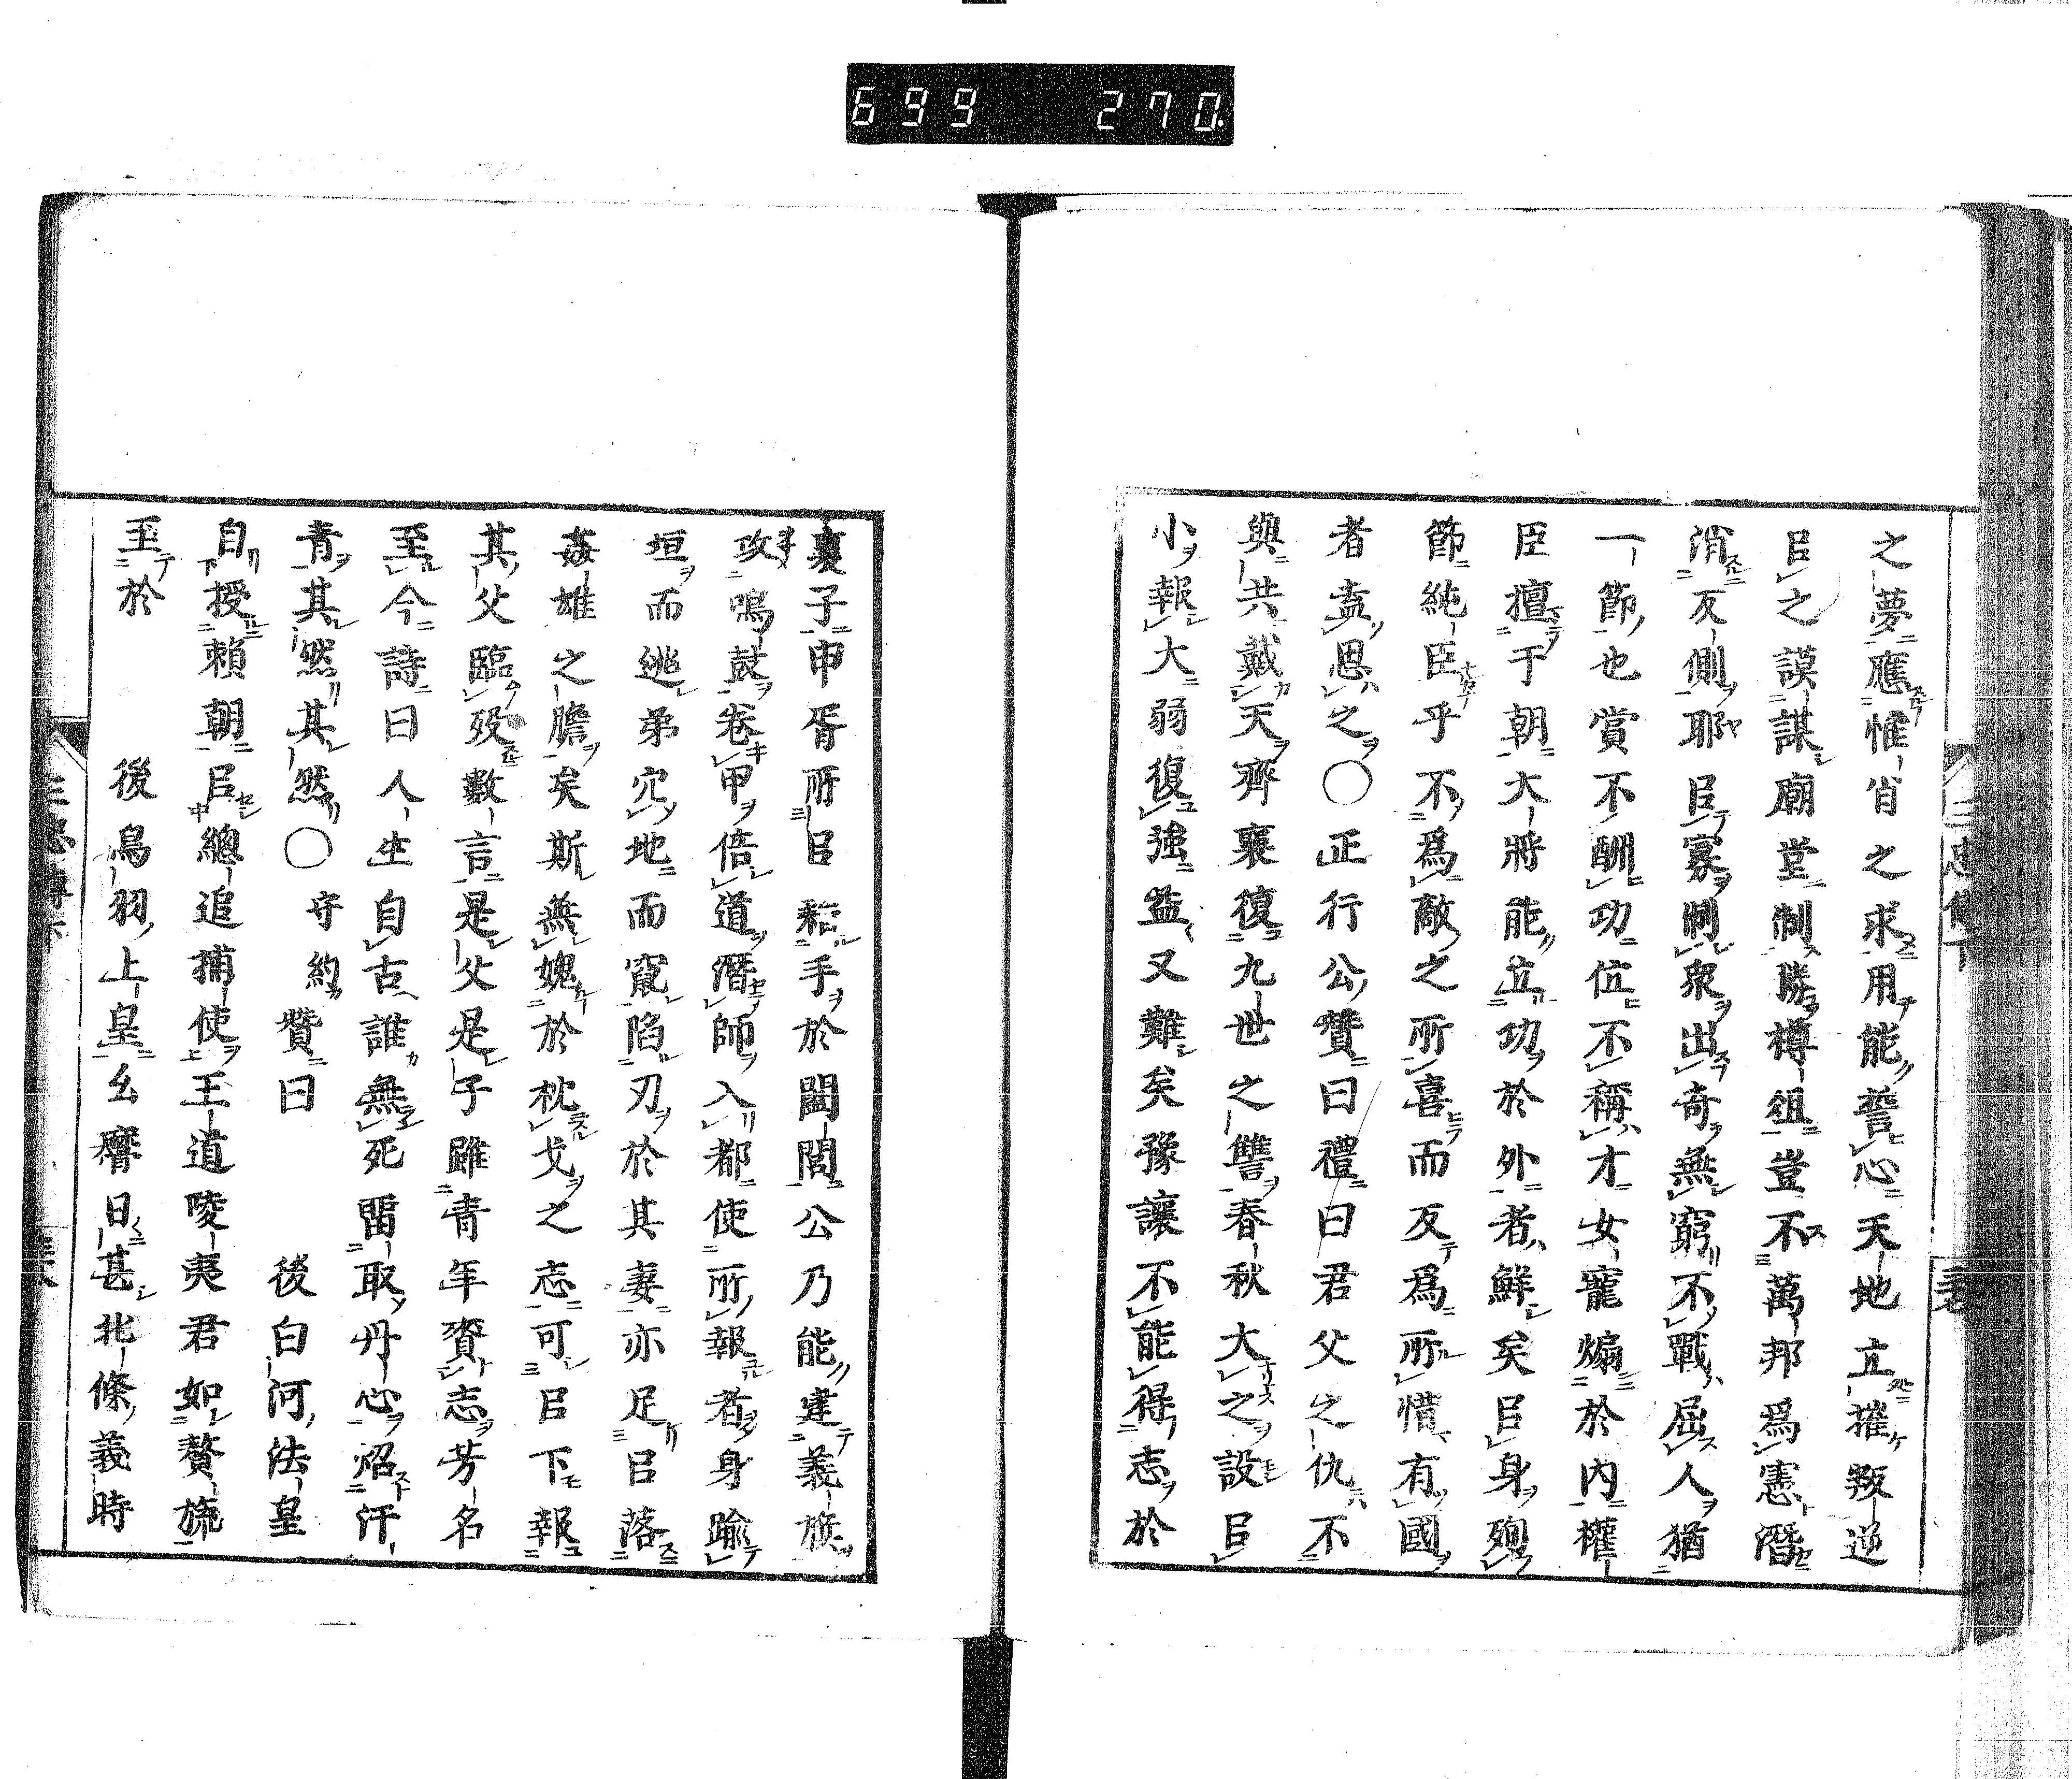 699 270
之夢應惟肖之求用能誓心天地立摧叛逆
㠯之謨謀廟堂制勝樽俎豈不萬邦爲憲潛
消反側耶㠯寡制衆出奇無窮不戰屈人猶
一節也賞不酬功位不稱才女寵煽於內權
臣擅于朝大將能立功於外者鮮矣㠯身殉
節純臣乎不爲敵之所喜而反爲所憎有國
者盍思之〇正行公贊曰禮曰君父之仇不
與共戴天齊襄復九世之讐春秋大之設㠯
小報大弱復強盖又難矣豫讓不能得志於
襄子申胥所㠯藉手於闔閭公乃能建義旗
攻鳴鼓卷甲倍道潛師入都使所報者身踰
垣而逃弟穴地而竄陷刃於其妻亦足㠯落
姦雄之膽矣斯無媿於枕戈之志可㠯下報
其父臨歿數言是父是子雖青年賚志芳名
至今詩曰人生自古誰無死畱取丹心炤汗
青其然其然〇守約贊曰 後白河法皇
自授賴朝㠯總追捕使王道陵夷君如贅旒
至於 後鳥羽上皇幺麿日甚北條義時